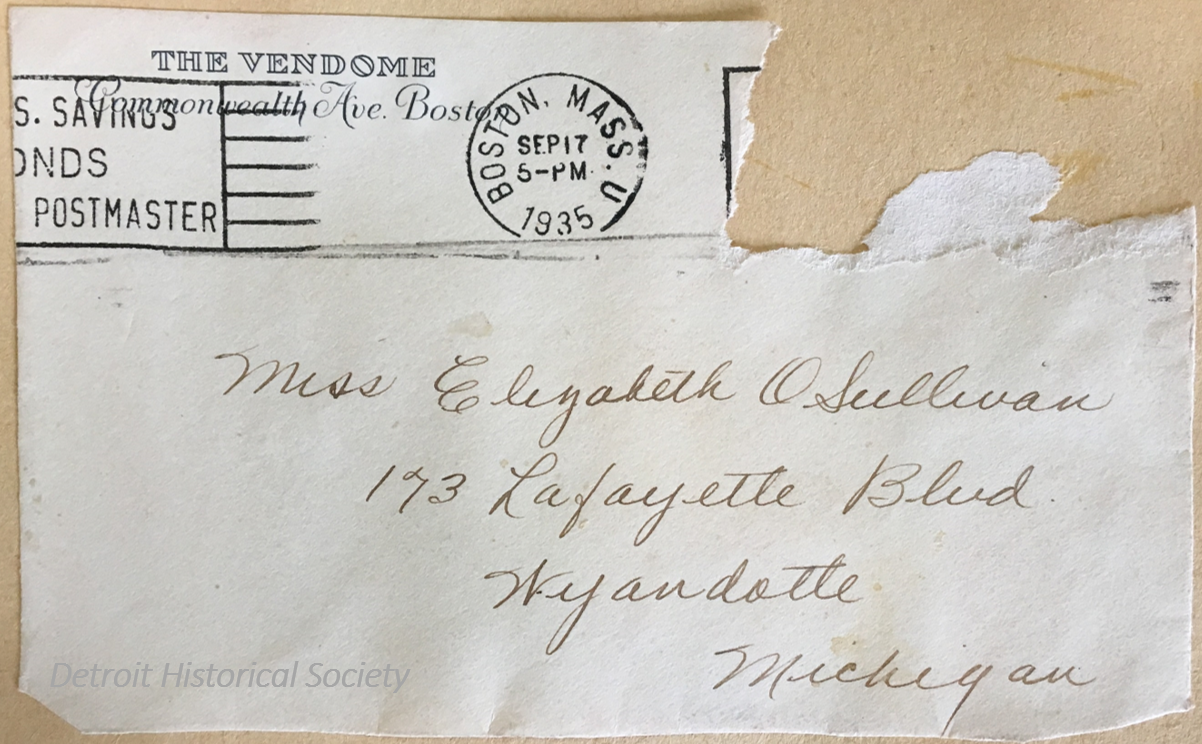 THE VENDOME
Commonwealth Ave. Boston
S. SAVINGS
ONDS
POSTMASTER
BOSTON, MASS. U
SEP 17
5-PM
1935
Miss Elizabeth OSullivan
173 Lafayette Blvd.
Wyandotte
Michigan
Detroit Historical Society